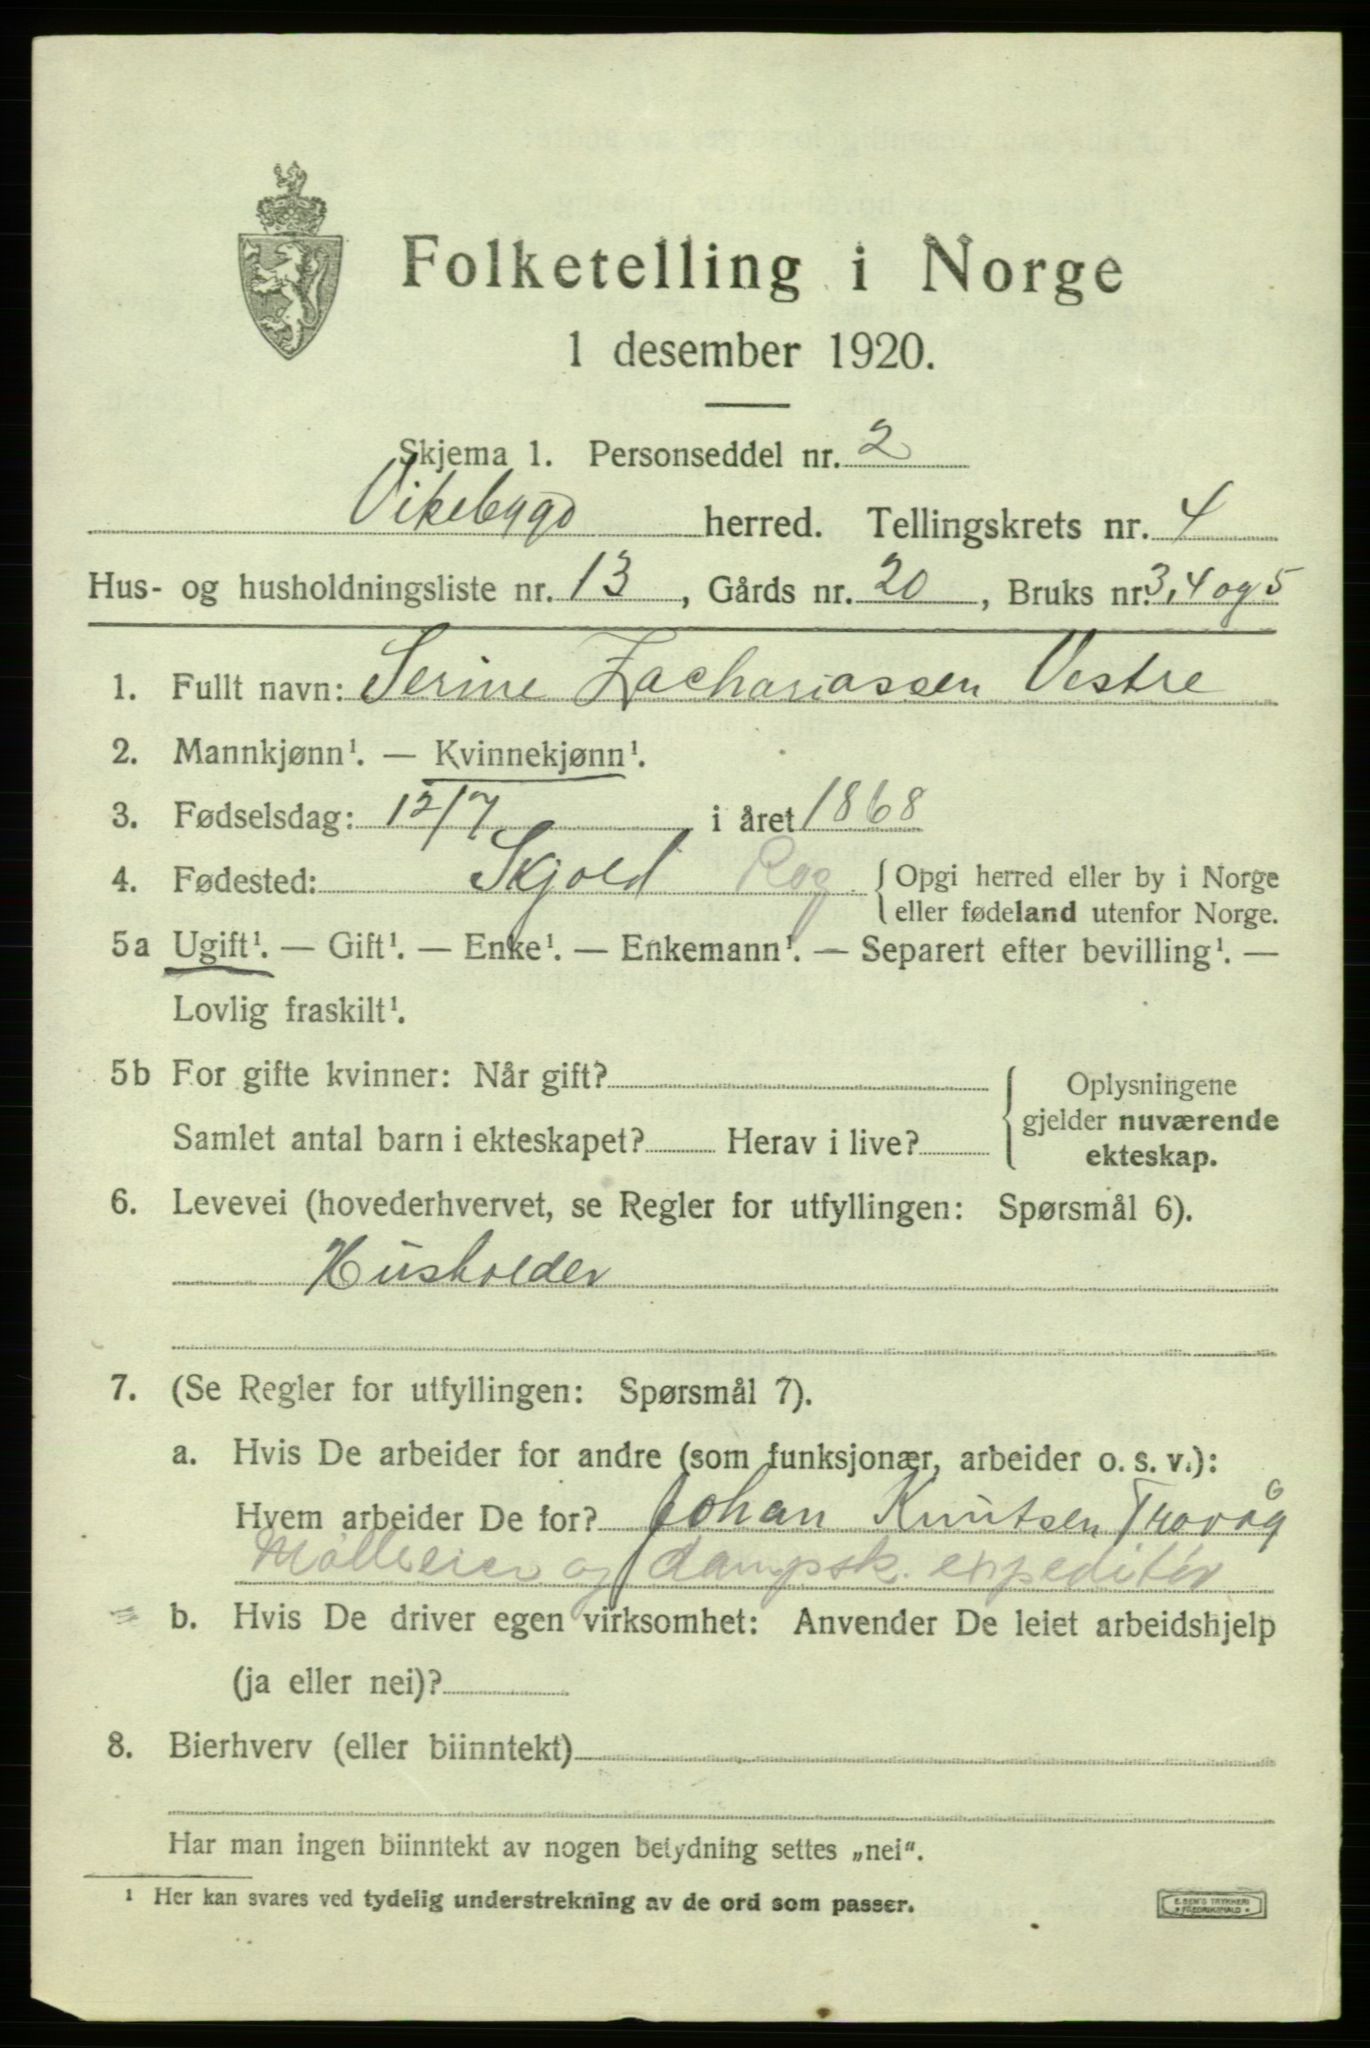 Folketelling i Norge
1 desember 1920.
Skjema 1. Personseddel nr. 2
Vikebygd herred. Tellingskrets nr. 4
Hus- og husholdningsliste nr. 13, Gårds nr. 20, Bruks nr. 3,4 og 5
1. Fullt navn: Serine Zachariassen Vestre
2. Mannkjønn¹. — Kvinnekjønn¹.
3. Fødselsdag: 12/7 i året 1868
4. Fødested: Skjold Rog. { Opgi herred eller by i Norge
eller fødeland utenfor Norge.
5a Ugift¹. — Gift¹. — Enke¹. — Enkemann¹. — Separert efter bevilling¹. —
Lovlig fraskilt¹.
5b For gifte kvinner: Når gift?
Samlet antal barn i ekteskapet? Herav i live?
{ Oplysningene
gjelder nuværende
ekteskap.
6. Levevei (hovederhvervet, se Regler for utfyllingen: Spørsmål 6).
Husholder
7. (Se Regler for utfyllingen: Spørsmål 7).
a. Hvis De arbeider for andre (som funksjonær, arbeider o. s. v.):
Hvem arbeider De for? Johan Knutsen Trovåg
Mølleeier og dampsk. expeditør
b. Hvis De driver egen virksomhet: Anvender De leiet arbeidshjelp
(ja eller nei)?
8. Bierhverv (eller biinntekt)
Har man ingen biinntekt av nogen betydning settes „nei“.
¹ Her kan svares ved tydelig understrekning av de ord som passer.
E. SEM'S TRYKKERI
• FREDRIKSHALD •